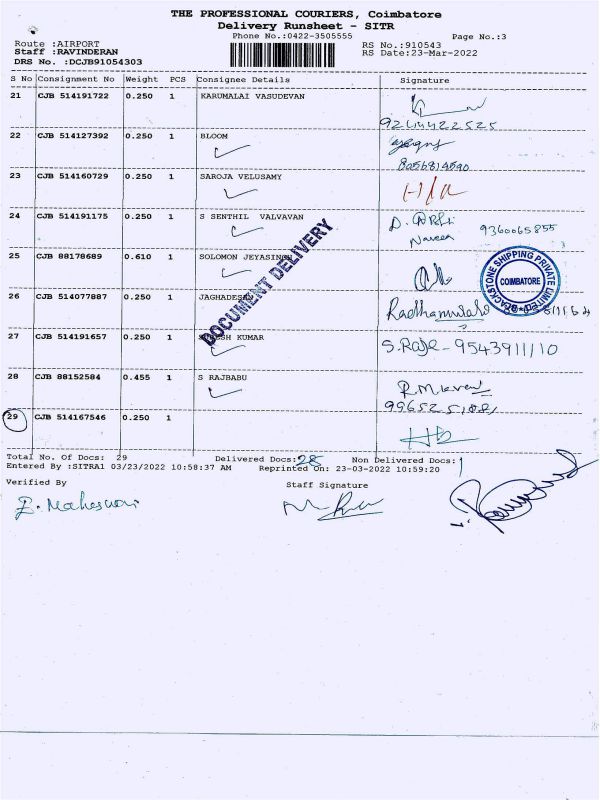 THE PROFESSIONAL COURIERS, Coimbatore
Delivery Runsheet - SITR
Phone No.:0422-3505555
Page No.:3
Route :AIRPORT
RS No.:910543
Staff :RAVINDERAN
RS Date:23-Mar-2022
DRS No. :DCJB91054303
S No Consignment No Weight PCS Consignee Details Signature
21 CJB 514191722 0.250 1 KARUMALAI VASUDEVAN
9244422525
22 CJB 514127392 0.250 1 BLOOM
8056814590
23 CJB 514160729 0.250 1 SAROJA VELUSAMY
24 CJB 514191175 0.250 1 S SENTHIL VALVAVAN
Naveen 9360065855
25 CJB 88178689 0.610 1 SOLOMON JEYASINGH
DOCUMENT DELIVERY
BACKSTONE SHIPPING PRIVATE LIMITED
COIMBATORE
26 CJB 514077887 0.250 1 JAGHADESAN
27 CJB 514191657 0.250 1 KUMAR
S.Raje - 9543911110
28 CJB 88152584 0.455 1 S RAJBABU
29 CJB 514167546 0.250 1
Total No. Of Docs: 29 Delivered Docs:28 Non Delivered Docs:1
Entered By :SITRA1 03/23/2022 10:58:37 AM Reprinted On: 23-03-2022 10:59:20
Verified By Staff Signature
E. Maheswari